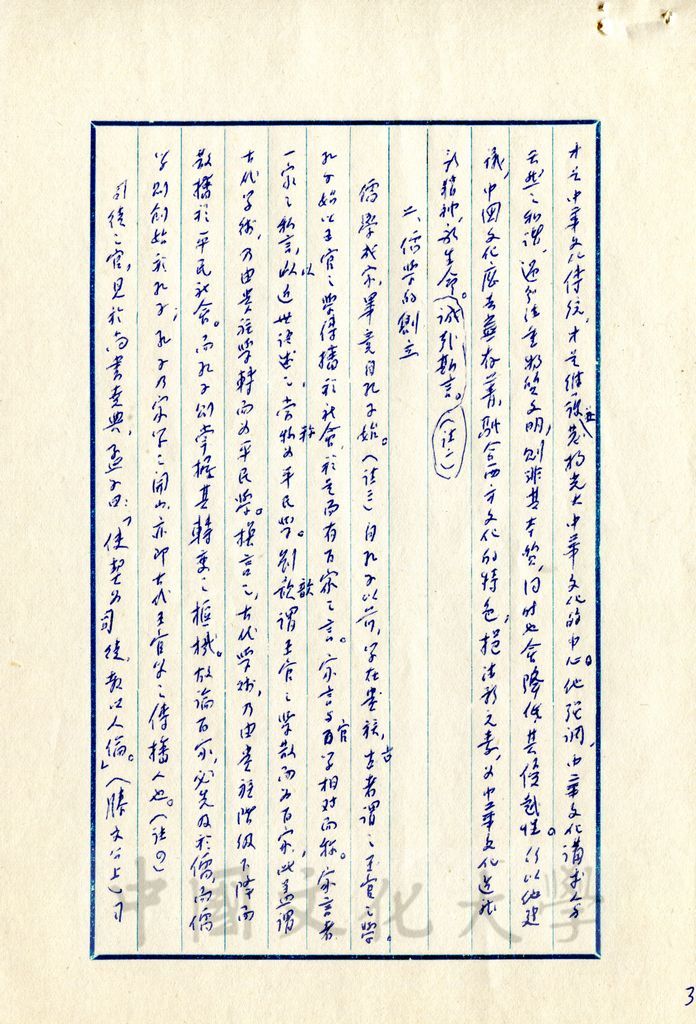 才是中華文化傳統,才是維護並發揚光大中華文化的中心。他強調,中華文化講求合
天然之和諧,過分注重物質文明,則非其本質,同時也會降低其優越性。所以他建
議,中國文化應去蕪存菁,融合西方文化的特色,挹注新元素,為中華文化造就
新精神,新生命。誠哉斯言。(註二)
二、儒學的創立
儒學成家,畢竟自孔子始。(註三)自孔子以前,學在貴族,古者謂之王官之學。
孔子始以王官之學傳播於社會,於是而有百家之言。家言與官學相對而稱。家言者
一家之私言,以近世語述之,當稱為平民學。劉歆謂王官之學散而為百家,此蓋謂
古代學術,乃由貴族學轉而為平民學。換言之,古代學術,乃由貴族階級下降而
散播於平民社會。而孔子則掌握其轉變之樞機。故論百家,必先及於儒,而儒
學則創始於孔子;孔子乃家學之開山,亦即古代王官學之傳播人也。(註四)
司徒之官,見於尚書堯典,孟子曰:「使契為司徒,教以人倫。」(滕文公上)司
中國文化大學
3